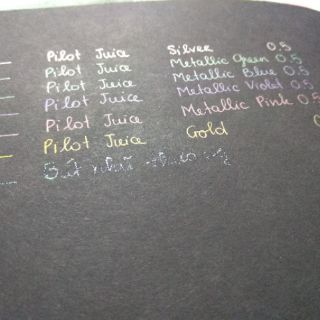 Pilot Juice Silver 0.5
Pilot Juice Metallic Green 0.5
Pilot Juice Metallic Blue 0.5
Pilot Juice Metallic Violet 0.5
Pilot Juice Metallic Pink 0.5
Pilot Juice Gold
Bút